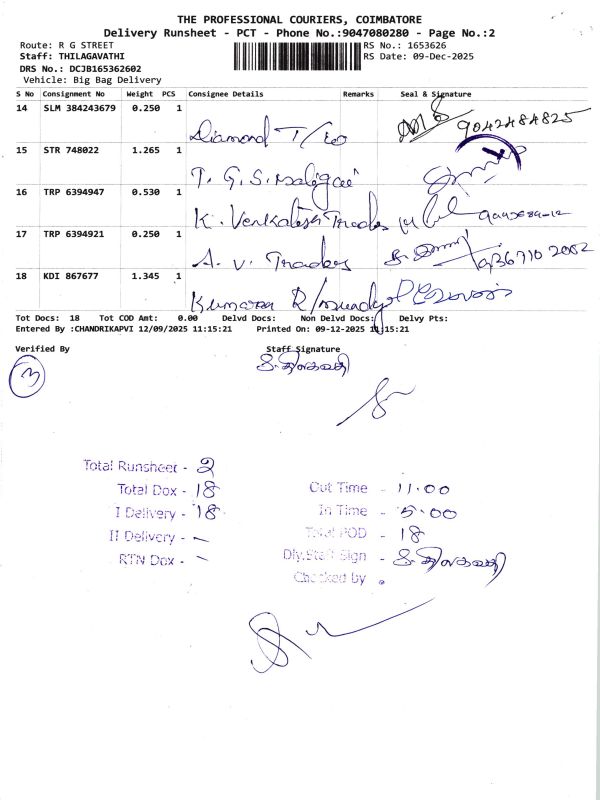 THE PROFESSIONAL COURIERS, COIMBATORE
Delivery Runsheet - PCT - Phone No.:9047080280 - Page No.:2
Route: R G STREET
RS No.: 1653626
Staff: THILAGAVATHI
RS Date: 09-Dec-2025
DRS No.: DCJB165362602
Vehicle: Big Bag Delivery
S No Consignment No Weight PCS Consignee Details Remarks Seal & Signature
14 SLM 384243679 0.250 1
Diamond T/Co 9042484825
15 STR 748022 1.265 1
T. G. S. Maligai
16 TRP 6394947 0.530 1
K. Venkatesh Trades
17 TRP 6394921 0.250 1
A. V. Traders 936710 2002
18 KDI 867677 1.345 1
Kumaran R/mundy
Tot Docs: 18 Tot COD Amt: 0.00 Delvd Docs: Non Delvd Docs: Delvy Pts:
Entered By :CHANDRIKAPVI 12/09/2025 11:15:21 Printed On: 09-12-2025 11:15:21
Verified By Staff Signature
3 கி.திலகவதி
Total Runsheet - 2
Total Dox - 18 Out Time - 11.00
I Delivery - 18 In Time - 5.00
II Delivery - – Total POD - 18
RTN Dox - – Dly.Staff Sign - கி.திலகவதி
Checked by